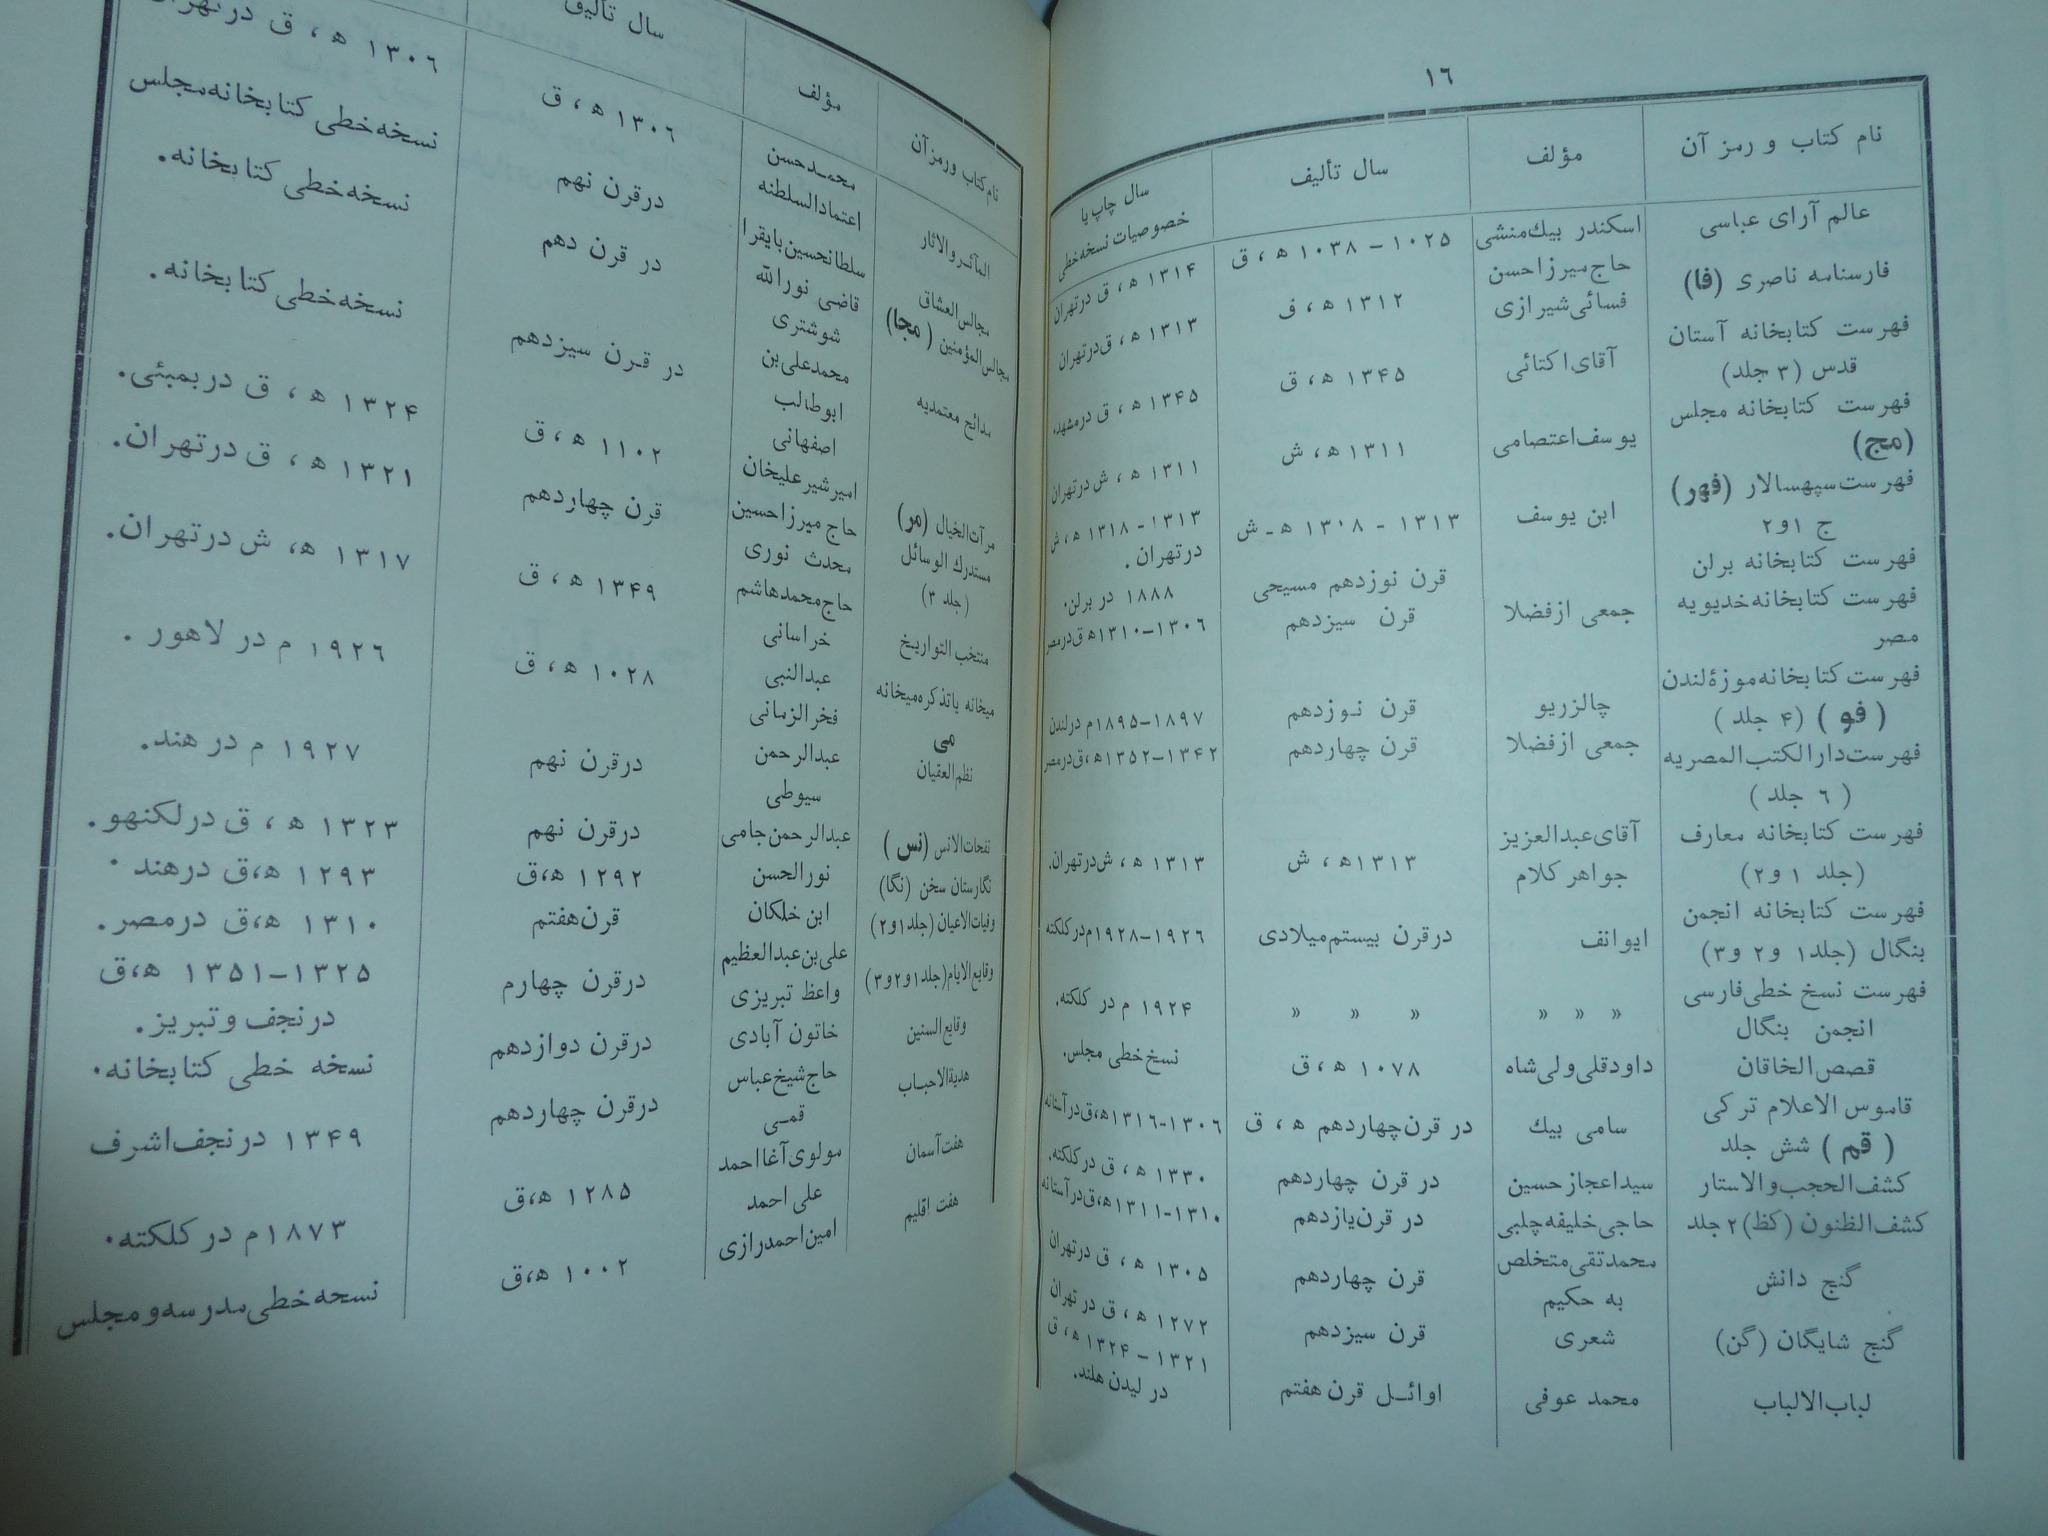 ١٦
نام کتاب و رمز آن مؤلف سال تألیف سال چاپ یا خصوصیات نسخه خطی
عالم آرای عباسی اسکندر بیك منشی ۱۰۲۵ – ۱۰۳۸ ه ، ق ۱۳۱۴ ه ، ق در تهران
فارسنامه ناصری (فا) حاج میرزا حسن فسائی شیرازی ۱۳۱۲ ه ، ق ۱۳۱۳ ه ، ق در تهران
فهرست کتابخانه آستان قدس (۳ جلد) آقای اکتائی ۱۳۴۵ ه ، ق ۱۳۴۵ ه ، ق در مشهد.
فهرست کتابخانه مجلس (مج) یوسف اعتصامی ۱۳۱۱ ه ، ش ۱۳۱۱ ه ، ش در تهران
فهرست سپهسالار (فهر) ج ۱و۲ ابن یوسف ۱۳۱۳ – ۱۳۰۸ ه ـ ش ۱۳۱۳ - ۱۳۱۸ ه ، ش در تهران .
فهرست کتابخانه برلن قرن نوزدهم مسیحی ۱۸۸۸ در برلن.
فهرست کتابخانه خدیویه مصر جمعی از فضلا قرن سیزدهم ۱۳۰٦–۱۳۱۰ه ق در مصر
فهرست کتابخانه موزهٔ لندن ( فو ) (۴ جلد ) چالزریو قرن نوزدهم ۱۸۹۷–۱۸۹۵م در لندن
فهرست دارالکتب المصریه ( ٦ جلد ) جمعی از فضلا قرن چهاردهم ۱۳۴۲–۱۳۵۲ه،ق در مصر
فهرست کتابخانه معارف (جلد ۱ و۲) آقای عبدالعزیز جواهر کلام ۱۳۱۳ه ، ش ۱۳۱۳ ه ، ش در تهران.
فهرست کتابخانه انجمن بنگال (جلد۱ و۲ و۳) ایوانف در قرن بیستم میلادی ۱۹۲٦–۱۹۲۸م در کلکته
فهرست نسخ خطی فارسی انجمن بنگال » » » » » » ۱۹۲۴ م در کلکته.
قصص الخاقان داود قلی ولی شاه ۱۰۷۸ ه ، ق نسخ خطی مجلس.
قاموس الاعلام ترکی ( قم ) شش جلد سامی بیك در قرن چهاردهم ه ، ق ۱۳۰٦-۱۳۱٦ه،ق در آستانه
کشف الحجب والاستار سید اعجاز حسین در قرن چهاردهم ۱۳۳۰ ه ، ق در کلکته.
کشف الظنون (کظ) ۲ جلد حاجی خلیفه چلبی در قرن یازدهم ۱۳۱۰-۱۳۱۱ه،ق در آستانه
گنج دانش محمد تقی متخلص به حکیم قرن چهاردهم ۱۳۰۵ ه ، ق در تهران
گنج شایگان (گن) شعری قرن سیزدهم ۱۲۷۲ ه ، ق در تهران
لباب الالباب محمد عوفی اوائل قرن هفتم ۱۳۲۱ – ۱۳۲۴ ه ، ق در لیدن هلند.
نام کتاب و رمز آن مؤلف سال تألیف
المآثر والاثار محمد حسن اعتماد السلطنه ۱۳۰٦ ه ، ق ۱۳۰٦ ه ، ق در تهران
مجالس العشاق سلطان حسین بایقرا در قرن نهم نسخه خطی کتابخانه مجلس
مجالس المؤمنین ( مجا) قاضی نورالله شوشتری در قرن دهم نسخه خطی کتابخانه.
مدائح معتمدیه محمد علی بن ابوطالب اصفهانی در قرن سیزدهم نسخه خطی کتابخانه.
مرآت الخیال (مر) امیر شیر علیخان ۱۱۰۲ ه ، ق ۱۳۲۴ ه ، ق در بمبئی.
مستدرك الوسائل (جلد ۳) حاج میرزا حسین محدث نوری قرن چهاردهم ۱۳۲۱ ه ، ق در تهران.
منتخب التواریخ حاج محمد هاشم خراسانی ۱۳۴۹ ه ، ق ۱۳۱۷ ه، ش در تهران.
میخانه یا تذکره میخانه می عبدالنبی فخر الزمانی ۱۰۲۸ ه ، ق ۱۹۲٦ م در لاهور .
نظم العقیان عبدالرحمن سیوطی در قرن نهم ۱۹۲۷ م در هند.
نفحات الانس (نس ) عبدالرحمن جامی در قرن نهم ۱۳۲۳ ه ، ق در لکنهو.
نگارستان سخن (نگا) نور الحسن ۱۲۹۲ ه،ق ۱۲۹۳ ه،ق در هند .
وفیات الاعیان (جلد۱و۲) ابن خلکان قرن هفتم ۱۳۱۰ ه،ق در مصر.
وقایع الایام (جلد۱و۲و۳) علی بن عبدالعظیم واعظ تبریزی در قرن چهارم ۱۳۲۵–۱۳۵۱ ه،ق در نجف و تبریز.
وقایع السنین خاتون آبادی در قرن دوازدهم نسخه خطی کتابخانه.
هدیة الاحباب حاج شیخ عباس قمی در قرن چهاردهم ۱۳۴۹ در نجف اشرف
هفت آسمان مولوی آغا احمد علی احمد ۱۲۸۵ ه،ق ۱۸۷۳ م در کلکته.
هفت اقلیم امین احمد رازی ۱۰۰۲ ه،ق نسخه خطی مدرسه و مجلس